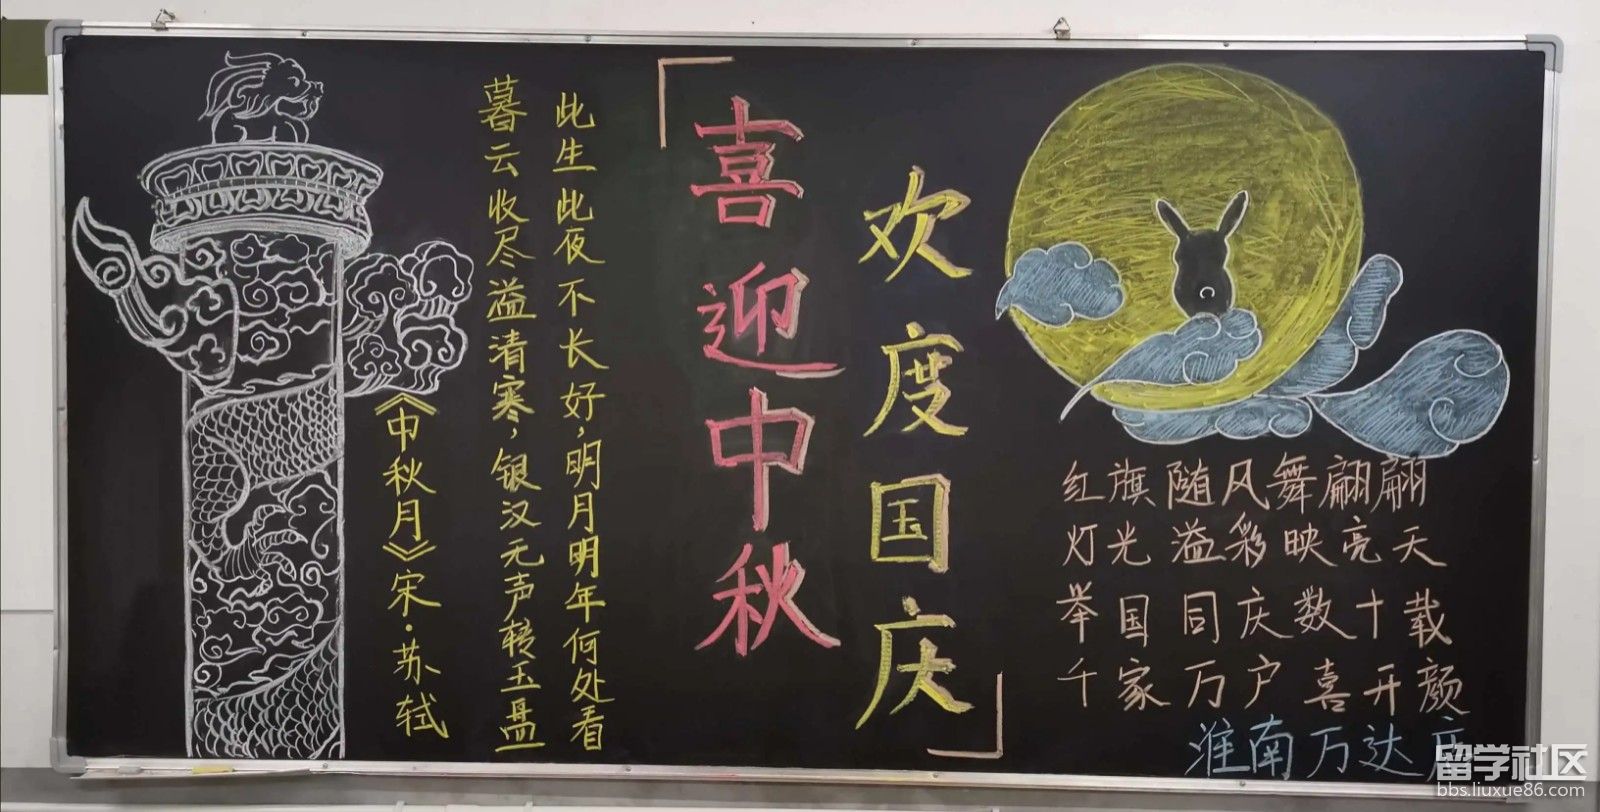 《中秋月》宋·苏轼
暮云收尽溢清寒,银汉无声转玉盘
此生此夜不长好,明月明年何处看
「喜迎中秋
欢度国庆」
红旗随风舞翩翩
灯光溢彩映亮天
举国同庆数十载
千家万户喜开颜
淮南万达
留学社区
bbs.liuxue86.com